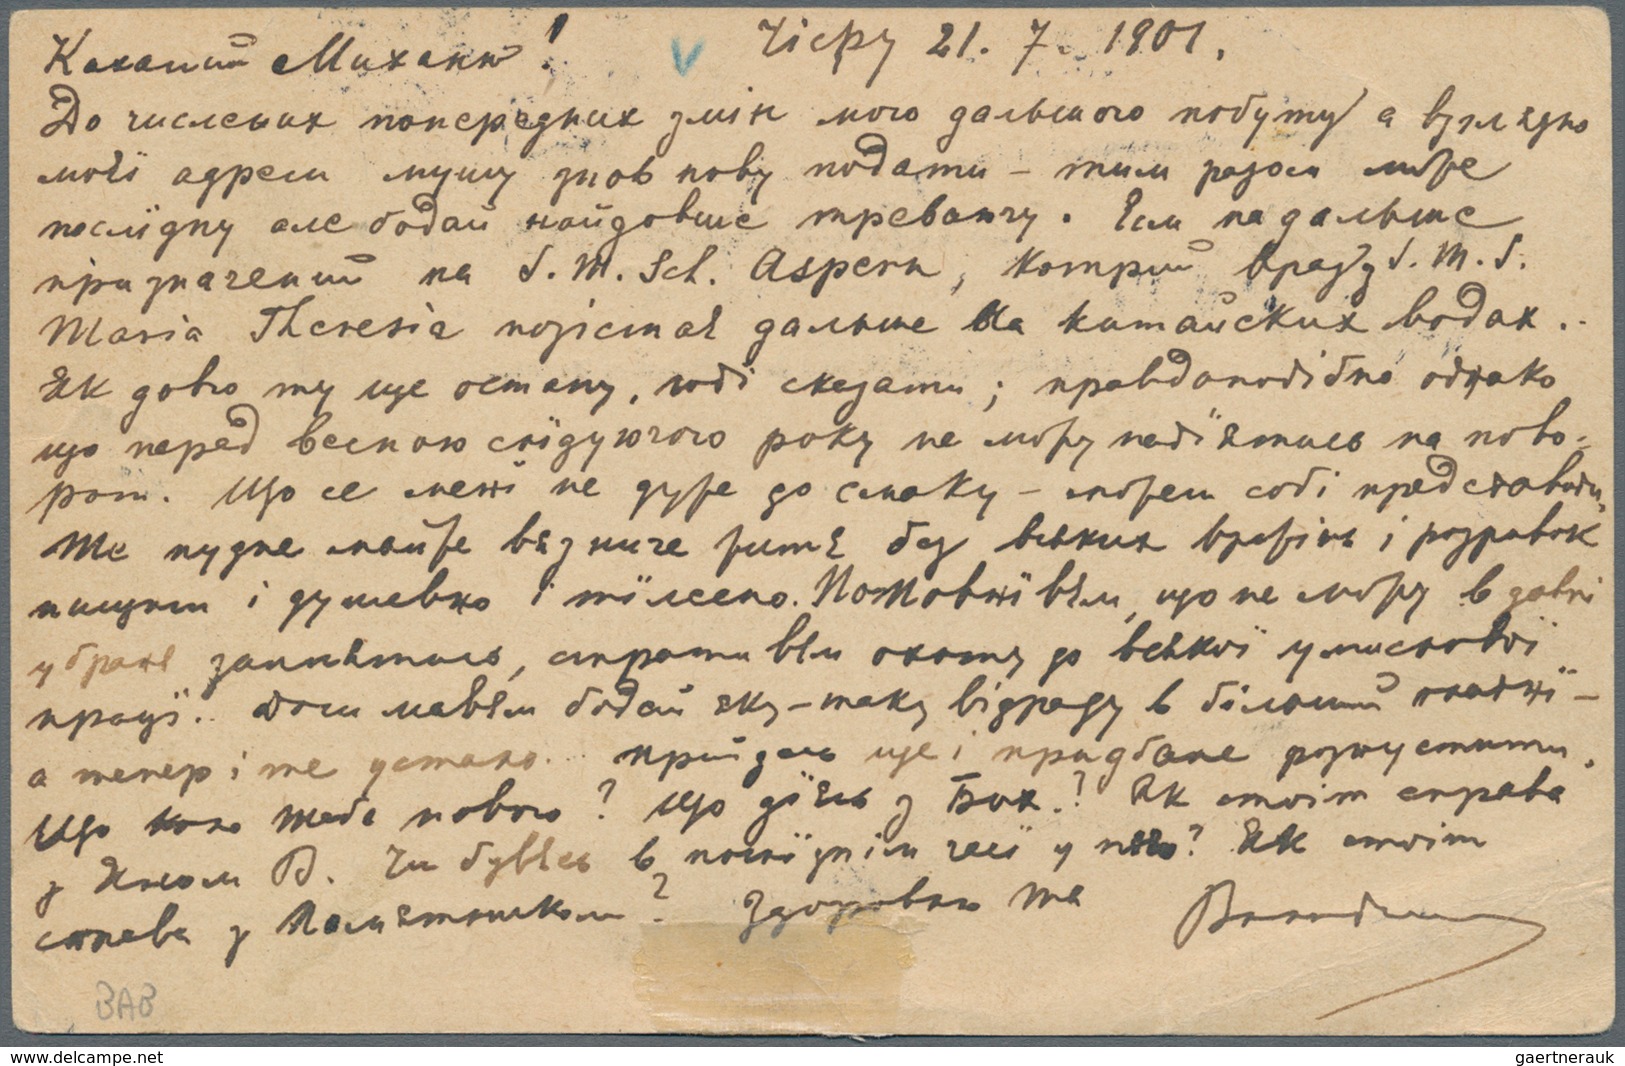 Коханий Михаськ! Чіфу 21. 7. 1901.
До численних попередних змін мого дальшого побуту а взглядно
моєї адреси мушу знов нову подати – тим разом може
послїдну але бодай найдовше треваючу. Єсм на дальше
призначений на S. M. Sch. Aspern, котрий враз з S. M. S.
Maria Theresia позістає дальше на китайских водах..
Як довго ту ще остану, годі сказати; правдоподібно однако
що перед весною слїдуючого року не можу надїятись на пово-
рот. Що се менї не дуже до смаку – можеш собі представити,
Те нудне майже вязниче житє без всяких вражінь і розривок
нищить і душевно і тїлесно. Потовпївєм, що не можу в давнї
убранє запнятись, стративєм охоту до всякої умислової
працї.. Доси мавєм бодай яку-таку відраду в більший платнї –
а тепер і те устало... прийдесь ще і придбане розпустити.
Що коло тебе нового? Що дїєсь з Бох.? Як стоїт справа
з Яком В. Чи бувєсь в послїднїм часї у него? Як стоїт
справа з Памятником? Здоровлю тя
gaertnerauk
BAB
www.delcampe.net